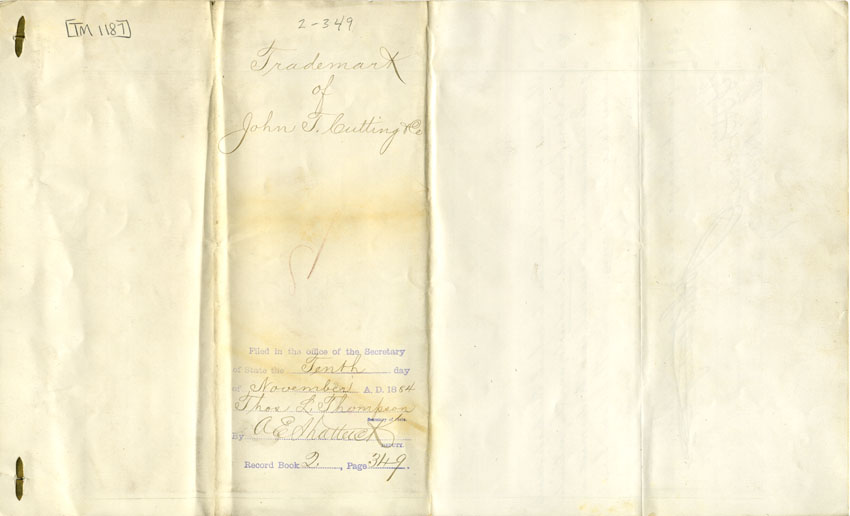 [TM 1187]
2-349
Trademark
of
John T. Cutting & Co
Filed in the office of the Secretary
of State the Tenth day
of November A. D. 1884
Thos L. Thompson
By A E Shattuck
Record Book 2, Page 349.